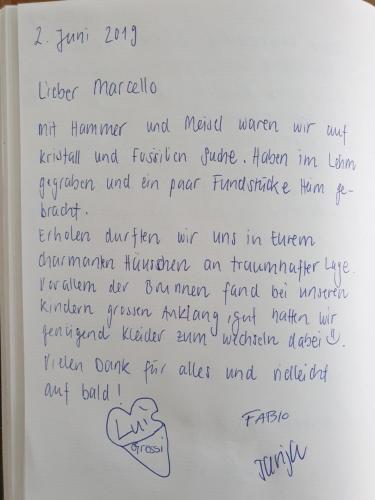 2. Juni 2019
Lieber Marcello
Mit Hammer und Meisel waren wir auf
Kristall und Fossilien Suche. Haben im Lehm
gegraben und ein paar Fundstücke Heim ge-
bracht.
Erholen durften wir uns in Eurem
charmanten Häuschen an traumhafter Lage.
Vorallem der Brunnen fand bei unseren
Kindern grossen Anklang, gut hatten wir
genügend Kleider zum wechseln dabei.
Vielen Dank für alles und vielleicht
auf bald!
Lui
Grossi
FABIO